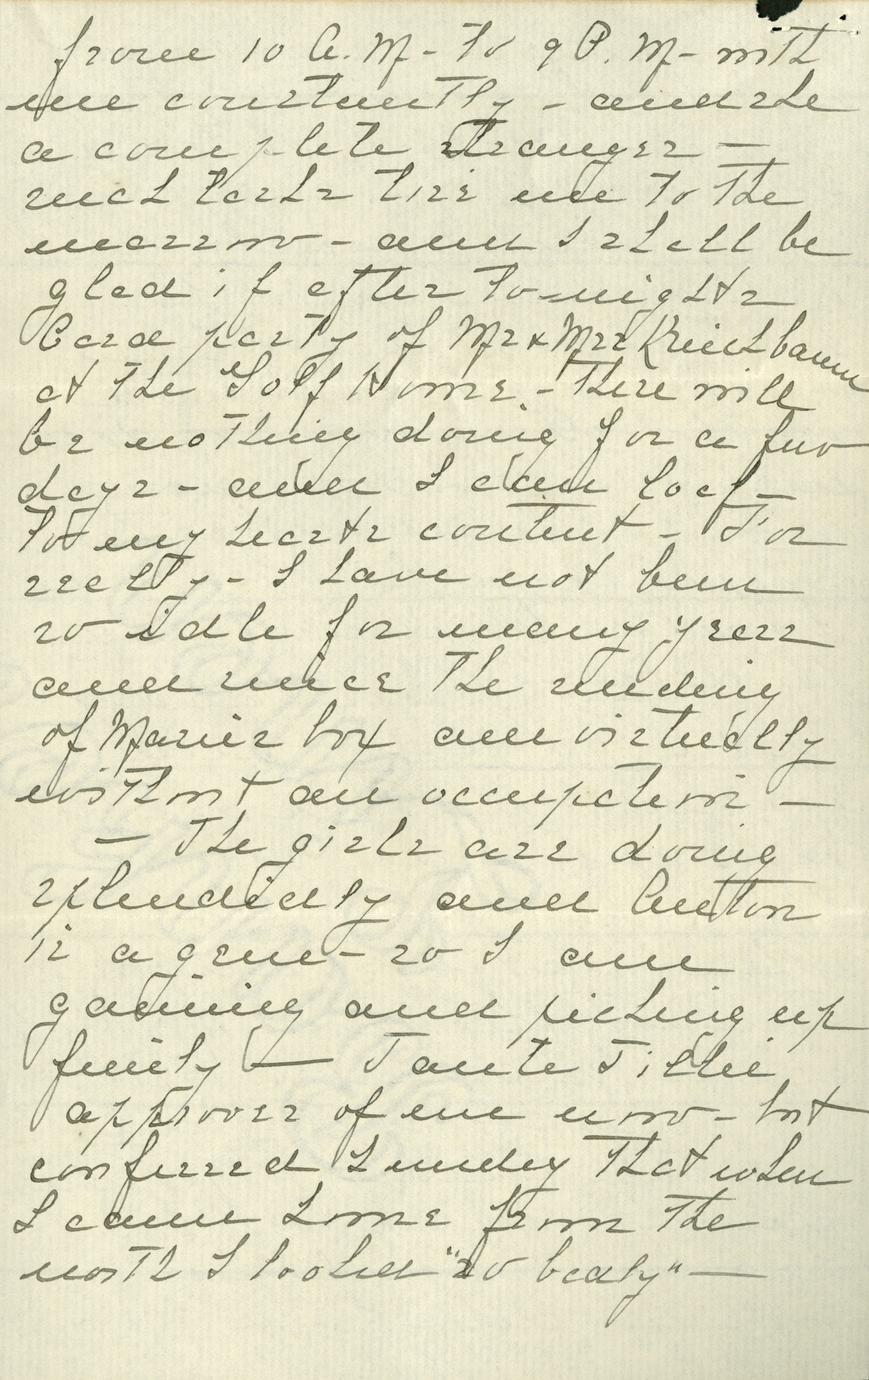 from 10 A. M - to 9 P. M - with
me constantly - and she
a complete stranger -
such tasks tire me to the
marrow - and I shall be
glad if after to-night's
Card party of Mr & Mrs Kriechbaum
at the Golf Home - there will
be nothing doing for a few
days - and I can loaf -
to my hearts content - For
really - I have not been
so idle for many years
and since the sending
of Marie's box am virtually
without an occupation -
- The girls are doing
splendidly and Anton
is a gem - so I am
gaining and picking up
finely - Tante Tillie
approves of me now - but
confessed Sunday that when
I came home from the
north I looked "so badly" -